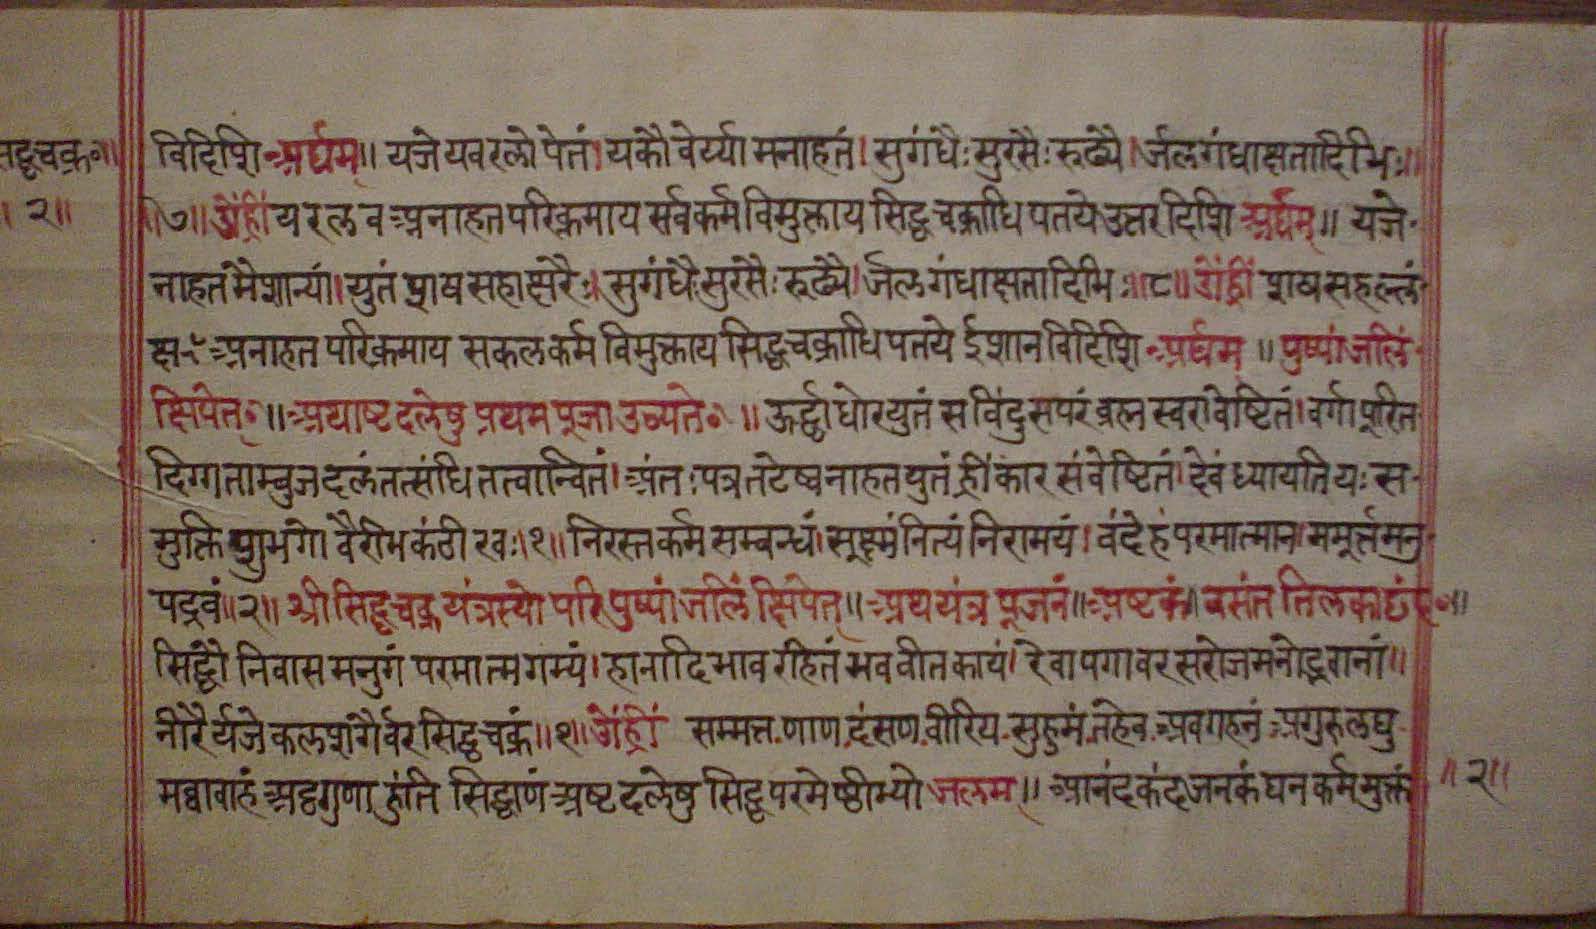 सिद्धचक्र॰॥ विदिशि अर्घम्॥ यजे यवरलोपेतं। यकौवेर्य्यामनाहतं। सुगंधैः सुरसैः रूढ्यै। र्जलगंधाक्षतादिभिः॥
॥२॥ ॥७॥ ॐह्रीं यरलव अनाहतपरिक्रमाय सर्वकर्मविमुक्ताय सिद्धचक्राधिपतये उत्तरदिशि अर्घम्॥ यजे
नाहतंमैशान्यां। युतं शषसहाक्षरैः। सुगंधैः सुरसैः रूढ्यै। र्जलगंधाक्षतादिभिः॥८॥ ॐह्रीं शषसहल्लं
क्ष अनाहतपरिक्रमाय सकलकर्मविमुक्ताय सिद्धचक्राधिपतये ईशानविदिशि अर्घम्॥ पुष्पांजलिं
क्षिपेत्॰॥ अथाष्टदलेषु प्रथमपूजा उच्यते॰॥ ऊर्द्ध्वाधोरयुतं सविंदुसपरं ब्रह्मस्वरावेष्टितं। वर्गापूरित
दिग्गताम्बुजदलंतत्संधितत्वान्वितं। अंतःपत्रतटेष्वनाहतयुतं ह्रींकारसंवेष्टितं। देवं ध्यायति यः स
मुक्तिशुभगो वैरीभकंठीरवः॥१॥ निरस्तकर्मसम्बन्धं। सूक्ष्मं नित्यं निरामयं। वंदेहं परमात्मानममूर्त्तमनु
पद्रवं॥२॥ श्रीसिद्धचक्रयंत्रस्योपरि पुष्पांजलिं क्षिपेत्॥ अथ यंत्रपूजनं॥ अष्टकं॥ वसंततिलकाछंद॰॥
सिद्धौ निवासमनुगं परमात्मगम्यं। हानादिभावरहितं भववीतकायं। रेवापगावरसरोजमनोद्भवानां॥
नीरैर्यजे कलशगैर्वरसिद्धचक्रं॥१॥ ॐह्रीं सम्मत्त.णाण.दंसण.वीरिय.सुहुमं.तहेव.अवगहनं अगुरुलघु
मव्वावाहं अट्ठगुणा हुंति सिद्धाणं अष्टदलेषु सिद्धपरमेष्ठीभ्यो जलम्॥ आनंदकंदजनकं घनकर्ममुक्तं ॥२॥